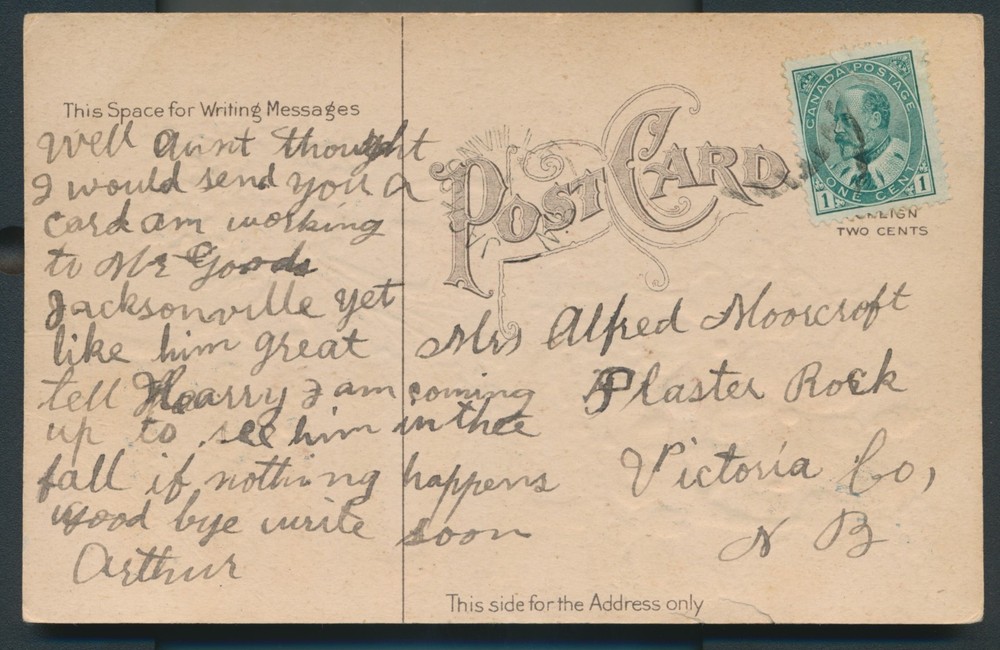 This Space for Writing Messages
Well aunt thought
I would send you a
card am working
to Mr Goods
Jacksonville yet
like him great
tell Hearry I am coming
up to see him in thee
fall if nothing happens
good bye write soon
Arthur
POST CARD
CANADA POSTAGE
1 ONE CENT 1
TWO CENTS
Mrs Alfred Moorcroft
Plaster Rock
Victoria Co,
N B
This side for the Address only